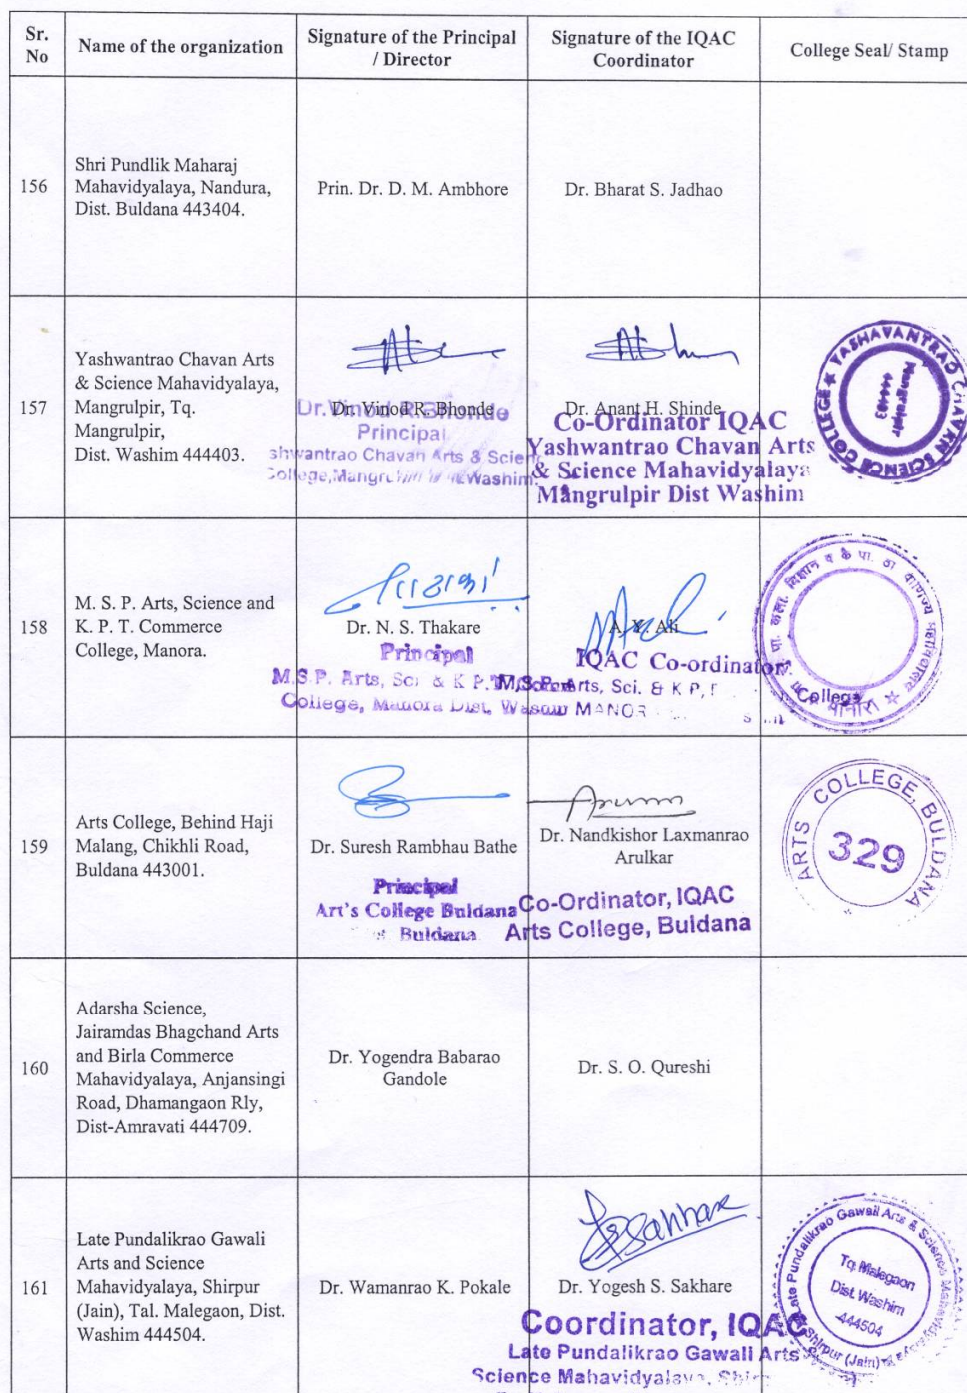 Sr. No
Name of the organization
Signature of the Principal / Director
Signature of the IQAC Coordinator
College Seal/ Stamp
156
Shri Pundlik Maharaj
Mahavidyalaya, Nandura,
Dist. Buldana 443404.
Prin. Dr. D. M. Ambhore
Dr. Bharat S. Jadhao
157
Yashwantrao Chavan Arts
& Science Mahavidyalaya,
Mangrulpir, Tq.
Mangrulpir,
Dist. Washim 444403.
Dr. Vinod R. Bhonde
Dr. Vinod R. Bhonde
Principal
shwantrao Chavan Arts & Scien
College, Washim
Dr. Anant H. Shinde
Co-Ordinator IQAC
Yashwantrao Chavan Arts
& Science Mahavidyalaya
Mangrulpir Dist Washim
YASHAVANTRAO CHAVAN SCIENCE COLLEGE
Mangrulpir
444403
158
M. S. P. Arts, Science and
K. P. T. Commerce
College, Manora.
Dr. N. S. Thakare
Principal
M.S.P. Arts, Sci & K P.T.
College, Manora Dist.
A. Y. Ali
IQAC Co-ordinator
M.S.P. Arts, Sci. & K P.T
MANOR
College
कला, विज्ञान व के पा. ठा वाणिज्य महाविद्यालय
मानोरा
159
Arts College, Behind Haji
Malang, Chikhli Road,
Buldana 443001.
Dr. Suresh Rambhau Bathe
Principal
Art's College Buldana
Buldana
Dr. Nandkishor Laxmanrao
Arulkar
Co-Ordinator, IQAC
Arts College, Buldana
ARTS COLLEGE, BULDANA
329
160
Adarsha Science,
Jairamdas Bhagchand Arts
and Birla Commerce
Mahavidyalaya, Anjansingi
Road, Dhamangaon Rly,
Dist-Amravati 444709.
Dr. Yogendra Babarao
Gandole
Dr. S. O. Qureshi
161
Late Pundalikrao Gawali
Arts and Science
Mahavidyalaya, Shirpur
(Jain), Tal. Malegaon, Dist.
Washim 444504.
Dr. Wamanrao K. Pokale
Sakhare
Dr. Yogesh S. Sakhare
Coordinator, IQAC
Late Pundalikrao Gawali Arts
Science Mahavidyalaya,
Late Pundalikrao Gawali Arts & Science
Shirpur (Jain)
Tq. Malegaon
Dist. Washim
-444504